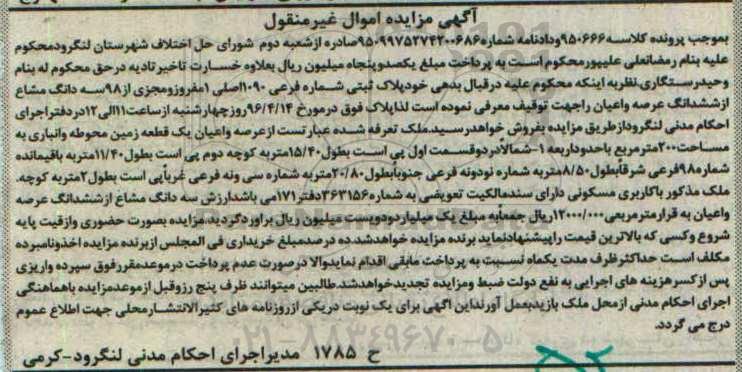 آگهی مزایده اموال غیرمنقول
بموجب پرونده کلاسه۹۵۰۶۶۶ودادنامه شماره۹۵۰۹۹۷۵۲۷۴۲۰۰۶۸۶صادره ازشعبه دوم شورای حل اختلاف شهرستان لنگرودمحکوم
علیه بنام رمضانعلی علیپورمحکوم است به پرداخت مبلغ یکصدوپنجاه میلیون ریال بعلاوه خسارت تاخیرتادیه درحق محکوم له بنام
وحیدرستگاری.نظربه اینکه محکوم علیه درقبال بدهی خودپلاک ثبتی شماره فرعی ۱۰۹۰اصلی ۱مفروزومجزی از۹۸سه دانگ مشاع
ازششدانگ عرصه واعیان راجهت توقیف معرفی نموده است لذاپلاک فوق درمورخ ۹۶/۴/۱۴روزچهارشنبه ازساعت۱۱الی۱۲دردفتراجرای
احکام مدنی لنگرودازطریق مزایده بفروش خواهدرسید.ملک تعرفه شده عبارتست ازعرصه واعیان یک قطعه زمین محوطه وانباری به
مساحت۲۰۰مترمربع باحدوداربعه ۱-شمالادردوقسمت اول پی است بطول۱۵/۴۰متربه کوچه دوم پی است بطول۱۱/۴۰متربه باقیمانده
شماره۹۸فرعی شرقاًبطول۸/۵۰متربه شماره نودونه فرعی جنوبابطول۲۰/۸۰متربه شماره سی ونه فرعی غرباًپی است بطول۲متربه کوچه.
ملک مذکور باکاربری مسکونی دارای سندمالکیت تعویضی به شماره۳۶۳۱۵۶دفتر۱۷۱می باشدارزش سه دانگ مشاع ازششدانگ عرصه
واعیان به قرارمترمربعی۱۲۰۰۰/۰۰۰ریال جمعاًبه مبلغ یک میلیاردودویست میلیون ریال براوردگردید.مزایده بصورت حضوری وازقیمت پایه
شروع وکسی که بالاترین قیمت راپیشنهادنماید برنده مزایده خواهدشد.ده درصدمبلغ خریداری فی المجلس ازبرنده مزایده اخذونامبرده
مکلف است حداکثرظرف مدت یکماه نسبت به پرداخت مابقی اقدام نمایدوالا درصورت عدم پرداخت درموعدمقررفوق سپرده واریزی
پس ازکسرهزینه های اجرایی به نفع دولت ضبط ومزایده تجدیدخواهدشد.طالبین میتوانند ظرف پنج رزوقبل ازموعدمزایده باهماهنگی
اجرای احکام مدنی ازمحل ملک بازیدبعمل آورنداین اگهی برای یک نوبت دریکی ازروزنامه های کثیرالانتشارمحلی جهت اطلاع عموم
درج می گردد.
ح ۱۷۸۵ مدیراجرای احکام مدنی لنگرود-کرمی
۰۲۱-۸۸۳۴۹۶۷۰-۵